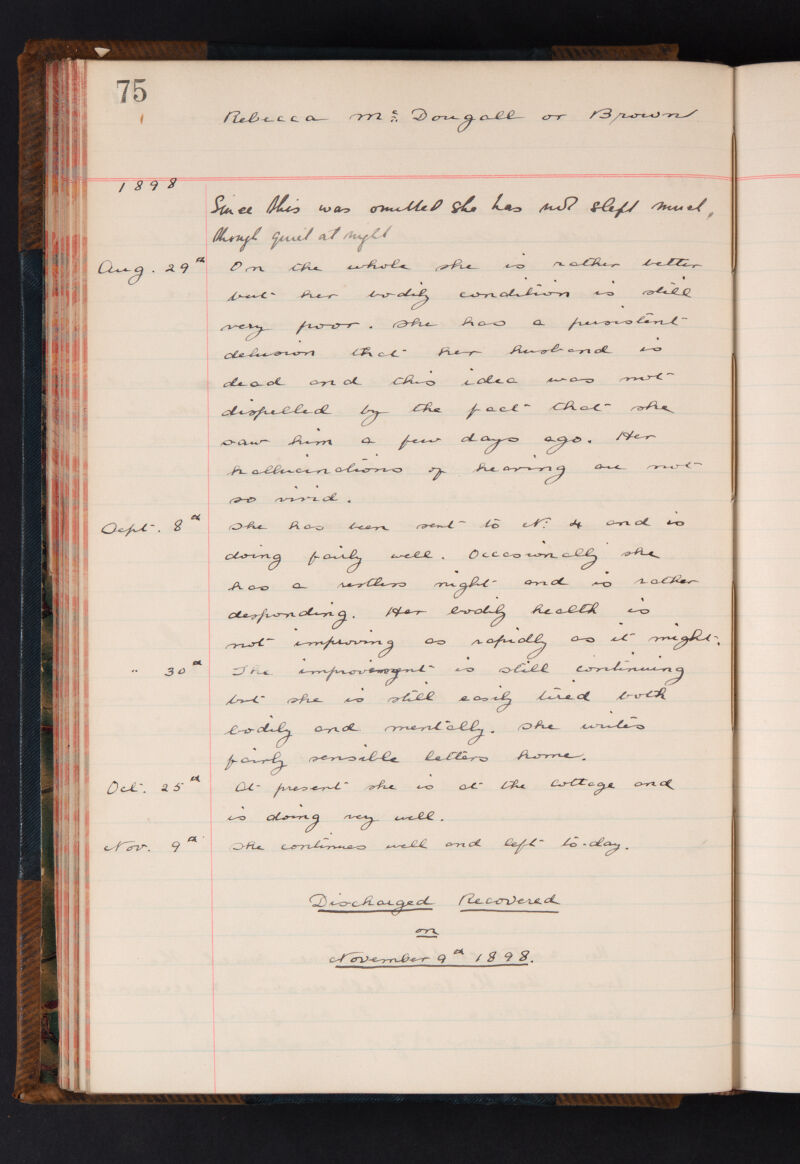 75
Rebecca Mc. Dougall or Brown
1898
Since this was omitted she has not slept much,
though quiet at night
Aug. 29th On the whole she is rather better
but her bodily condition is still
very poor. She has a persistent
delusion that her husband is
dead and this idea was not
dispelled by the fact that she
saw him a few days ago. Her
hallucinations of hearing are not
so vivid.
Sept. 8th She has been sent to No. 4 and is
doing fairly well. Occasionally she
has a restless night and is rather
desponding. Her bodily health is
not improving as rapidly as it might.
" 30th The improvement is still continuing
but she is still easily tired both
bodily and mentally. She writes
fairly sensible letters home.
Oct. 25th At present she is at the Cottage and
is doing very well.
Nov. 9th She continues well and left to-day.
Discharged Recovered
on
November 9th 1898.